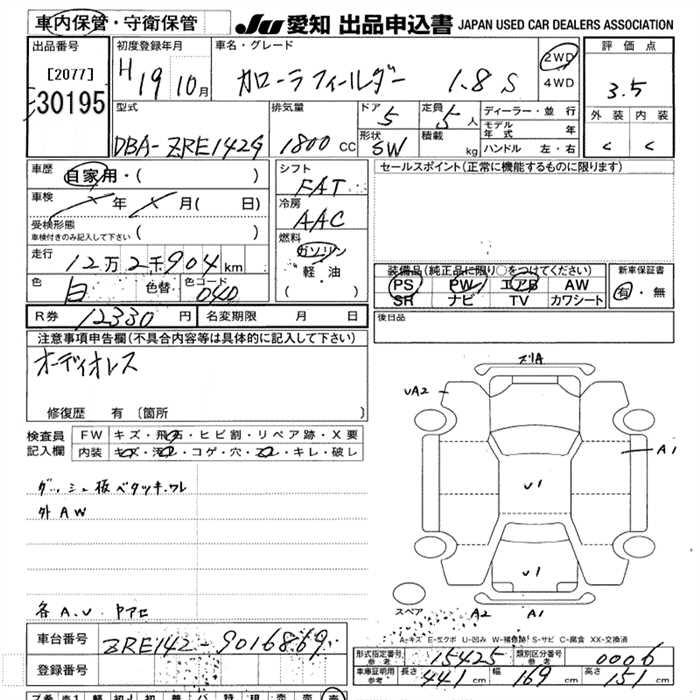 車内保管・守衛保管 JU 愛知 出品申込書 JAPAN USED CAR DEALERS ASSOCIATION
出品番号 初度登録年月 車名・グレード 評価点
[2077] H19年10月 カローラフィールダー 1.8 S 2WD 4WD 3.5
30195
型式 排気量 ドア 5 定員 5人 ディーラー・並行 外装 内装
DBA-ZRE142G 1800 CC 形状 SW 積載 kg モデル年式 年 C C
ハンドル 左・右
車歴 自家用・( ) シフト セールスポイント(正常に機能するものに限ります)
FAT
車検 年 月( 日) 冷房
受検形態 AAC
車検付きのみ記入して下さい ( )
走行 燃料
12万2千904km ガソリン 装備品(純正品に限り○をつけてください) 新車保証書
色 色替 色コード 軽・油 PS PW エアB AW 有・無
白 040 ( ) SR ナビ TV カワシート
R券 12330円 名変期限 月 日 後日品
注意事項申告欄(不具合内容等は具体的に記入して下さい)
オーディオレス ズリA
UA2
修復歴 有〔箇所 〕
検査員 FW キズ・飛石・ヒビ割・リペア跡・X要
記入欄 内装 キズ・汚レ・コゲ・穴・スレ・キレ・破レ A1
U1
ダッシュ板ベタツキ.ワレ
外AW
U1
スペア
各A.U. A2 A1
A-キズ E-エクボ U-凹み W-補修跡 S-サビ C-腐食 XX-交換済
車台番号 ZRE142-9016869 形式指定番号 参考 15425 類別区分番号 参考 0006
登録番号 車庫証明用 参考 長さ 441cm 幅 169cm 高さ 151cm